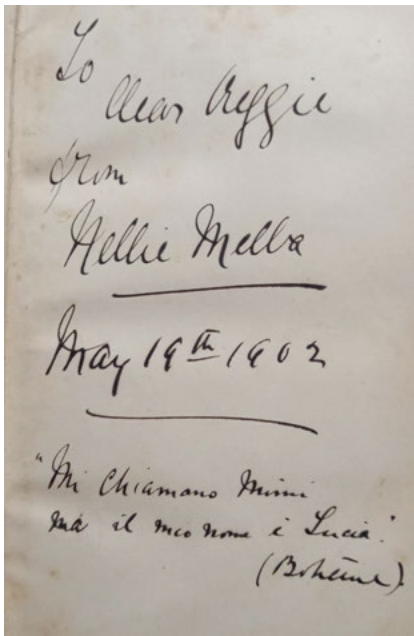 To
dear Reggie
from
Nellie Melba
May 19th 1902
"Mi Chiamano Mimi
ma il mio nome è Lucia".
(Bohème)